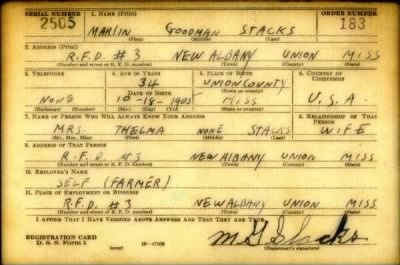 SERIAL NUMBER 1. NAME (Print) ORDER NUMBER
2505 MARLIN GOODMAN STACKS 183
(First) (Middle) (Last)
2. ADDRESS (Print)
R.F.D. #3 NEW ALBANY UNION MISS
(Number and street or R. F. D. number) (Town) (County) (State)
3. TELEPHONE 4. AGE IN YEARS 5. PLACE OF BIRTH 6. COUNTRY OF CITIZENSHIP
34 UNION COUNTY
DATE OF BIRTH (Town or county)
NONE 10-18-1905 MISS U.S.A.
(Exchange) (Number) (Mo.) (Day) (Yr.) (State or country)
7. NAME OF PERSON WHO WILL ALWAYS KNOW YOUR ADDRESS 8. RELATIONSHIP OF THAT PERSON
MRS. THELMA NONE STACKS WIFE
(Mr., Mrs., Miss) (First) (Middle) (Last)
9. ADDRESS OF THAT PERSON
R.F.D. #3 NEW ALBANY UNION MISS
(Number and street or R. F. D. number) (Town) (County) (State)
10. EMPLOYER'S NAME
SELF (FARMER)
11. PLACE OF EMPLOYMENT OR BUSINESS
R.F.D. #3 NEW ALBANY UNION MISS
(Number and street or R. F. D. number) (Town) (County) (State)
I AFFIRM THAT I HAVE VERIFIED ABOVE ANSWERS AND THAT THEY ARE TRUE.
REGISTRATION CARD
D. S. S. Form 1 (over) 16-17105 M G Stacks
(Registrant's signature)